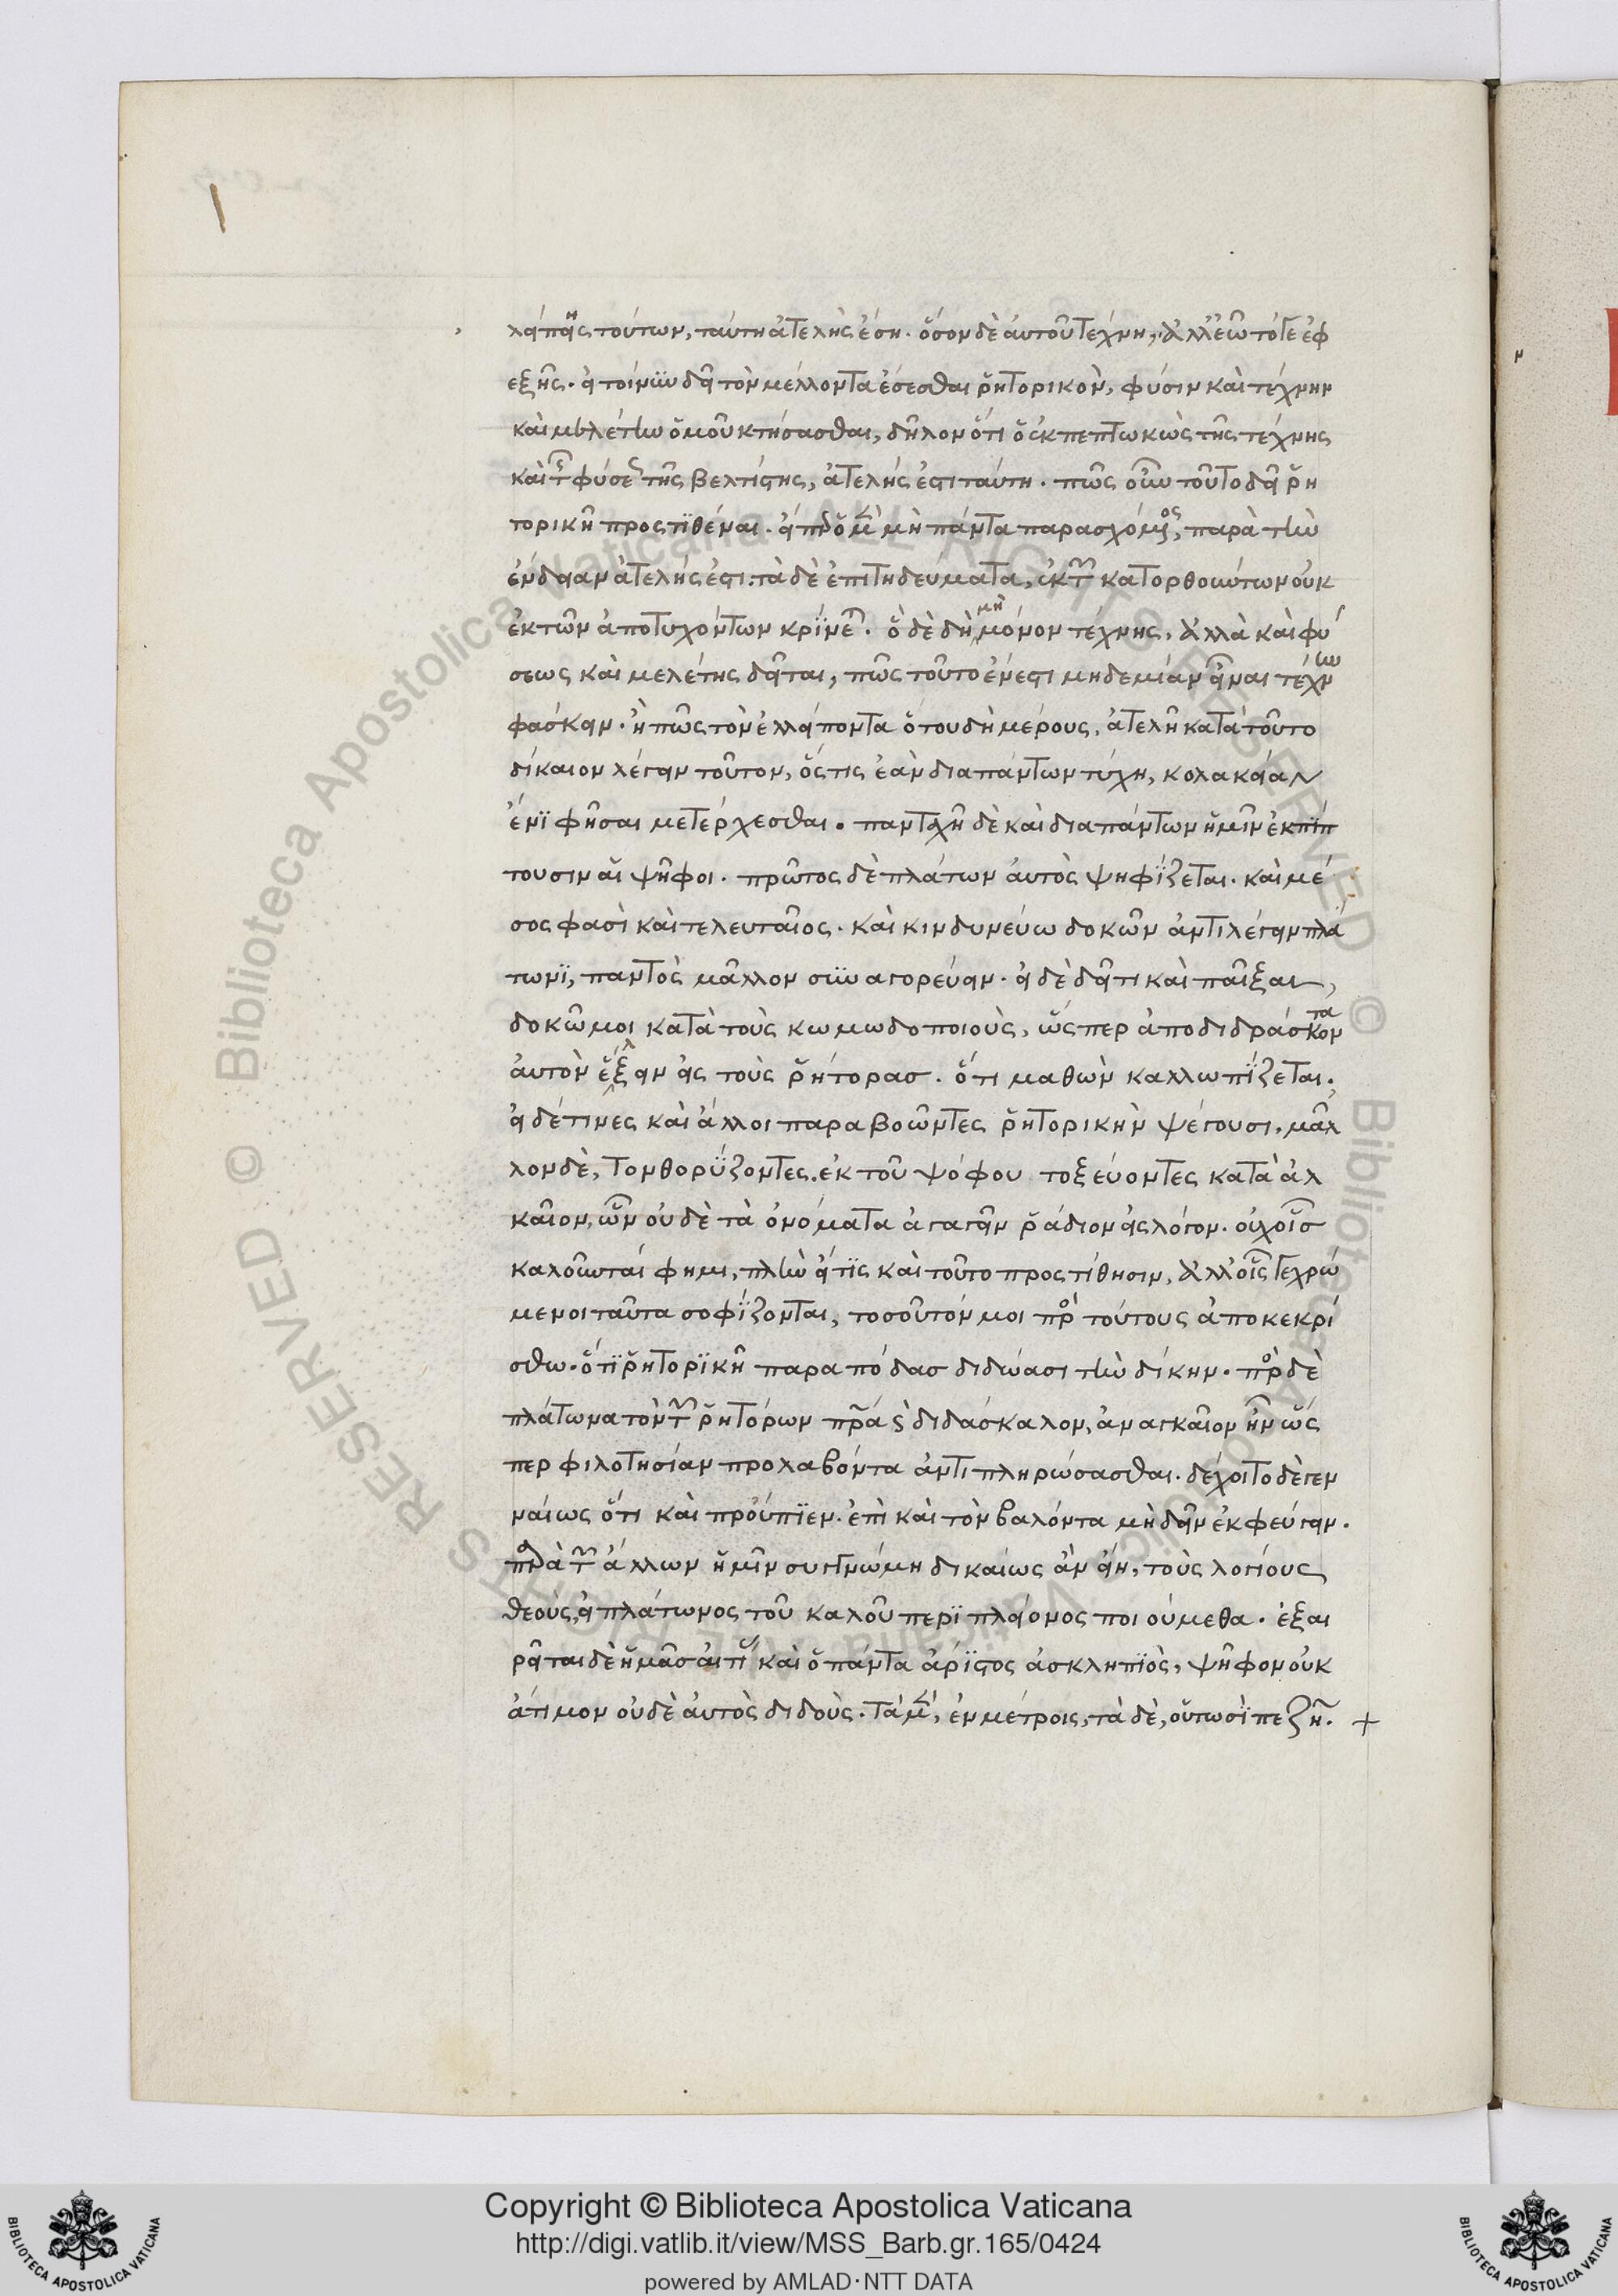 λείπῃς τούτων, ταύτῃ ἀτελὴς ἔσῃ. ὅσον δὲ αὐτοῦ τέχνη, ἀλλ' ἐῶ τό γε ἐφ
εξῆς. εἰ τοίνυν δεῖ τὸν μέλλοντα ἔσεσθαι ῥητορικὸν, φύσιν καὶ τέχνην
καὶ μελέτην ὁμοῦ κτήσασθαι, δῆλον ὅτι ὁ ἐκπεπτωκὼς τῆς τέχνης
καὶ τῆς φύσεως τῆς βελτίστης, ἀτελής ἐστι ταύτῃ. πῶς οὖν τοῦτο δεῖ ῥη
τορικῆ προστιθέναι. εἴπερ ὁ μὲν μὴ πάντα παρασχόμενος, παρὰ τὴν
ἔνδειαν ἀτελής ἐστι. τὰ δὲ ἐπιτηδεύματα, ἐκ τῶν κατορθούντων οὐκ
ἐκ τῶν ἀποτυχόντων κρίνεται. ὃ δὲ δὴ μὴ μόνον τέχνης, ἀλλὰ καὶ φύ
σεως καὶ μελέτης δεῖται, πῶς τοῦτο ἔνεστι μηδεμίαν εἶναι τέχνην
φάσκειν. ἢ πῶς τὸν ἐλλείποντα ὅτου δὴ μέρους, ἀτελῆ κατὰ τοῦτο
δίκαιον λέγειν τοῦτον, ὅστις ἐὰν διαπάντων τύχη, κολακείαν
ἔνι φῆσαι μετέρχεσθαι. πανταχῆ δὲ καὶ διαπάντων ἡμῖν ἐκπίπ
τουσιν αἱ ψῆφοι. πρῶτος δὲ πλάτων αὐτὸς ψηφίζεται. καὶ μέ
σος φασὶ καὶ τελευταῖος. καὶ κινδυνεύω δοκῶν ἀντιλέγειν πλά
τωνι, παντὸς μᾶλλον συναγορεύειν. εἰ δὲ δεῖ τι καὶ παῖξαι,
δοκῶ μοι κατὰ τοὺς κωμωδοποιοὺς, ὥσπερ ἀποδιδράσκοντα
αὐτὸν ἕλξειν εἰς τοὺς ῥήτορασ. ὅτι μαθὼν καλλωπίζεται.
εἰ δέ τινες καὶ ἄλλοι παραβοῶντες ῥητορικὴν ψέγουσι, μᾶλ
λον δὲ, τονθορύζοντες. ἐκ τοῦ ψόφου τοξεύοντες κατὰ ἀλ
καῖον, ὧν οὐδὲ τὰ ὀνόματα ἀγαγεῖν ῥάδιον εἰς λόγον. οὐχ οἷσ
καλοῦνταί φημι, πλὴν εἴ τις καὶ τοῦτο προστίθησιν, ἀλλ' οἷς γε χρώ
μενοι ταῦτα σοφίζονται, τοσοῦτόν μοι πρὸς τούτους ἀποκεκρί
σθω. ὅτι ῥητορικῆ παρα πόδασ διδόασι τὴν δίκην. πρὸς δὲ
πλάτωνα τὸν τῶν ῥητόρων πατέρα καὶ διδάσκαλον, ἀναγκαῖον ἦν ὥσ
περ φιλοτησίαν προλαβόντα ἀντιπληρώσασθαι. δέχοιτο δὲ γεν
ναίως ὅτι καὶ προὔπιεν. ἐπὶ καὶ τὸν βαλόντα μὴ δεῖν ἐκφεύγειν.
παρὰ τῶν ἄλλων ἡμῖν συγγνώμη δικαίως ἂν εἴη, τοὺς λογίους
θεοὺς, εἰ πλάτωνος τοῦ καλοῦ περὶ πλείονος ποιούμεθα. ἐξαι
ρεῖται δὲ ἡμᾶσ αἰτίας καὶ ὁ πάντα ἄριστος ἀσκληπιὸς, ψῆφον οὐκ
ἄτιμον οὐδὲ αὐτὸς διδοὺς. τὰ μὲν, ἐν μέτροις, τὰ δὲ, οὑτωσὶ πεζῆ. +
Copyright © Biblioteca Apostolica Vaticana
http://digi.vatlib.it/view/MSS_Barb.gr.165/0424
powered by AMLAD·NTT DATA